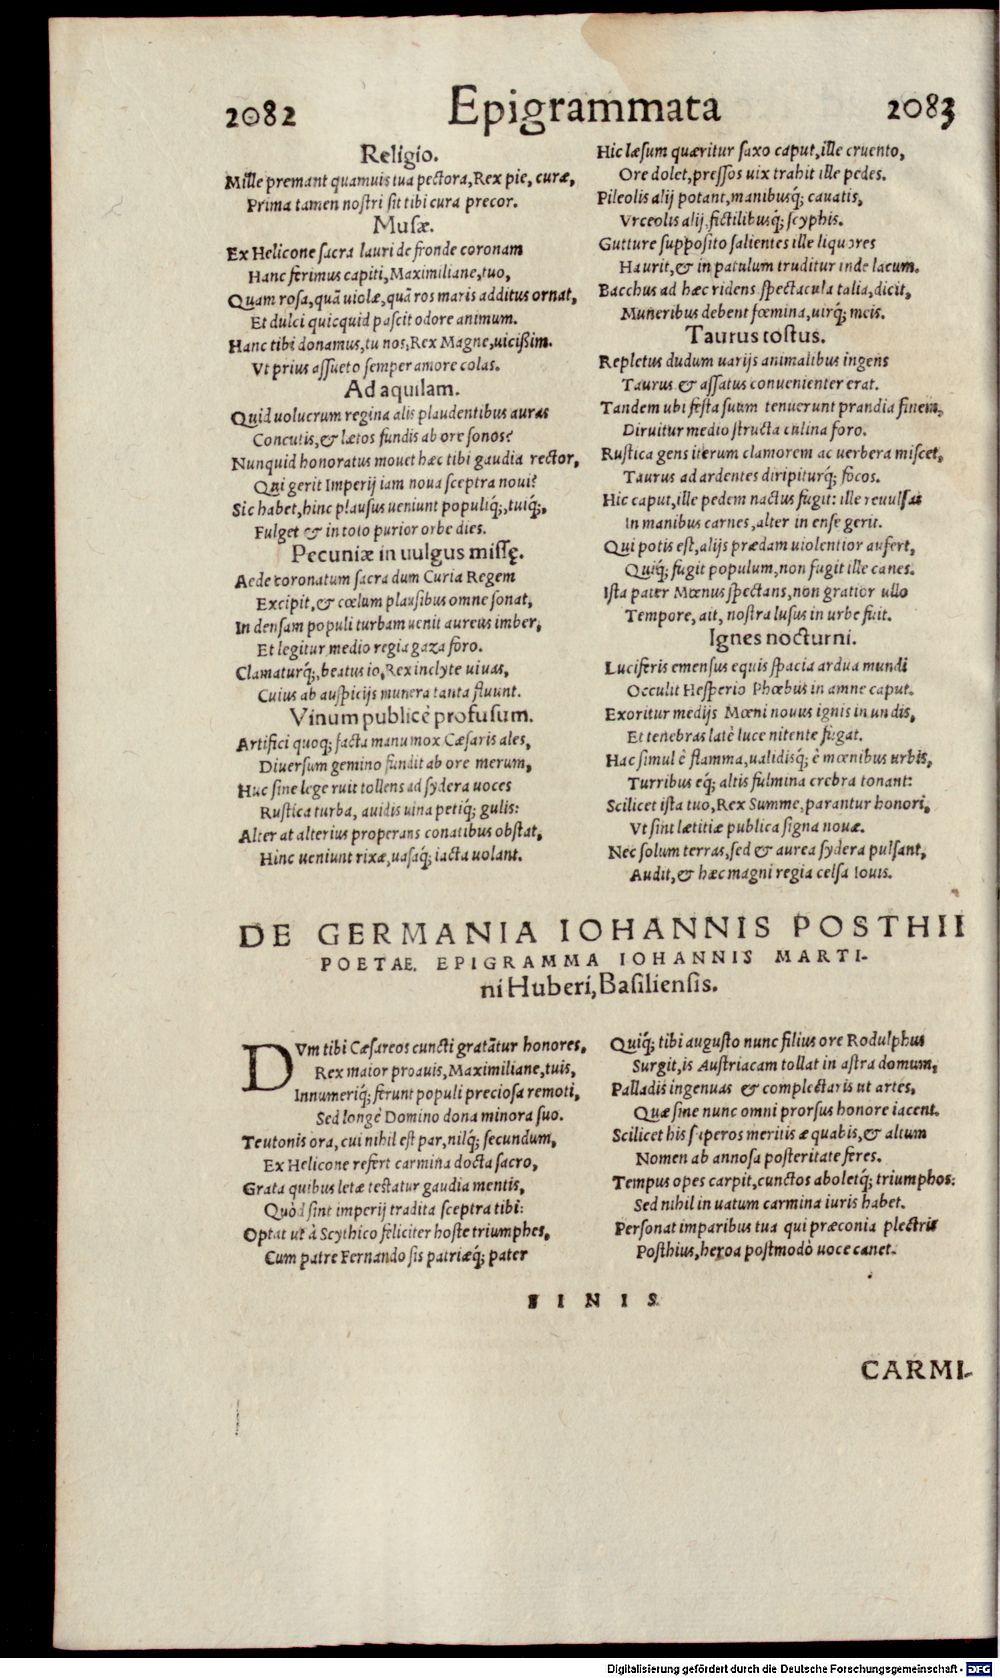 2082
Epigrammata
2083
Religio.
Mille premant quamuis tua pectora, Rex pie, curæ,
Prima tamen nostri sit tibi cura precor.
Musæ.
Ex Helicone sacra lauri de fronde coronam
Hanc ferimus capiti, Maximiliane, tuo,
Quam rosa, quā violæ, quā ros maris additus ornat,
Et dulci quicquid pascit odore animum.
Hanc tibi donamus, tu nos, Rex Magne, uicißim.
Vt prius assueto semper amore colas.
Ad aquilam.
Quid uolucrum regina alis plaudentibus auras
Concutis, & lætos fundis ab ore sonos?
Nunquid honoratus mouet hæc tibi gaudia rector,
Qui gerit Imperij iam noua sceptra noui?
Sic habet, hinc plausus ueniunt populiq́;, tuiq́;,
Fulget & in toto purior orbe dies.
Pecuniæ in uulgus missę.
Aede coronatum sacra dum Curia Regem
Excipit, & cœlum plausibus omne sonat,
In densam populi turbam uenit aureus imber,
Et legitur medio regia gaza foro.
Clamaturq́;, beatus io, Rex inclyte uiuas,
Cuius ab auspicijs munera tanta fluunt.
Vinum publicè profusum.
Artifici quoq; facta manu mox Cæsaris ales,
Diuersum gemino fundit ab ore merum,
Huc sine lege ruit tollens ad sydera uoces
Rustica turba, auidis uina petiq́; gulis:
Alter at alterius properans conatibus obstat,
Hinc ueniunt rixæ, uasaq́; iacta uolant.
Hic læsum quæritur saxo caput, ille cruento,
Ore dolet, pressos uix trahit ille pedes.
Pileolis alij potant, manibusq́; cauatis,
Vrceolis alij, fictilibusq́; scyphis.
Gutture supposito salientes ille liquores
Haurit, & in patulum truditur inde lacum.
Bacchus ad hæc ridens spectacula talia, dicit,
Muneribus debent fœmina, uirq́; meis.
Taurus tostus.
Repletus dudum uarijs animalibus ingens
Taurus & assatus conuenienter erat.
Tandem ubi festa suum tenuerunt prandia finem,
Diruitur medio structa culina foro.
Rustica gens iterum clamorem ac uerbera miscet,
Taurus ad ardentes diripiturq́; focos.
Hic caput, ille pedem nactus fugit: ille reuulsas
In manibus carnes, alter in ense gerit.
Qui potis est, alijs prædam uiolentior aufert,
Quiq́; fugit populum, non fugit ille canes.
Ista pater Mœnus spectans, non gratior ullo
Tempore, ait, nostra lusus in urbe fuit.
Ignes nocturni.
Luciferis emensus equis spacia ardua mundi
Occulit Hesperio Phœbus in amne caput.
Exoritur medijs Mœni nouus ignis in undis,
Et tenebras latè luce nitente fugat.
Hac simul è flamma, ualidisq́; è mœnibus urbis,
Turribus eq́; altis fulmina crebra tonant:
Scilicet ista tuo, Rex Summe, parantur honori,
Vt sint lætitiæ publica signa nouæ.
Nec solum terras, sed & aurea sydera pulsant,
Audit, & hæc magni regia celsa Iouis.
DE GERMANIA IOHANNIS POSTHII
POETAE, EPIGRAMMA IOHANNIS MARTI-
ni Huberi, Basiliensis.
DVm tibi Cæsareos cuncti gratātur honores,
Rex maior proauis, Maximiliane, tuis,
Innumeriq́; ferunt populi preciosa remoti,
Sed longè Domino dona minora suo.
Teutonis ora, cui nihil est par, nilq́; secundum,
Ex Helicone refert carmina docta sacro,
Grata quibus letæ testatur gaudia mentis,
Quòd sint imperij tradita sceptra tibi:
Optat ut à Scythico feliciter hoste triumphes,
Cum patre Fernando sis patriæq́; pater
Quiq́; tibi augusto nunc filius ore Rodulphus
Surgit, is Austriacam tollat in astra domum,
Palladis ingenuas & complectaris ut artes,
Quæ sine nunc omni prorsus honore iacent.
Scilicet his superos meritis æquabis, & altum
Nomen ab annosa posteritate feres.
Tempus opes carpit, cunctos aboletq́; triumphos:
Sed nihil in uatum carmina iuris habet.
Personat imparibus tua qui præconia plectris
Posthius, heroa postmodò uoce canet.
FINIS
CARMI-
Digitalisierung gefördert durch die Deutsche Forschungsgemeinschaft - DFG